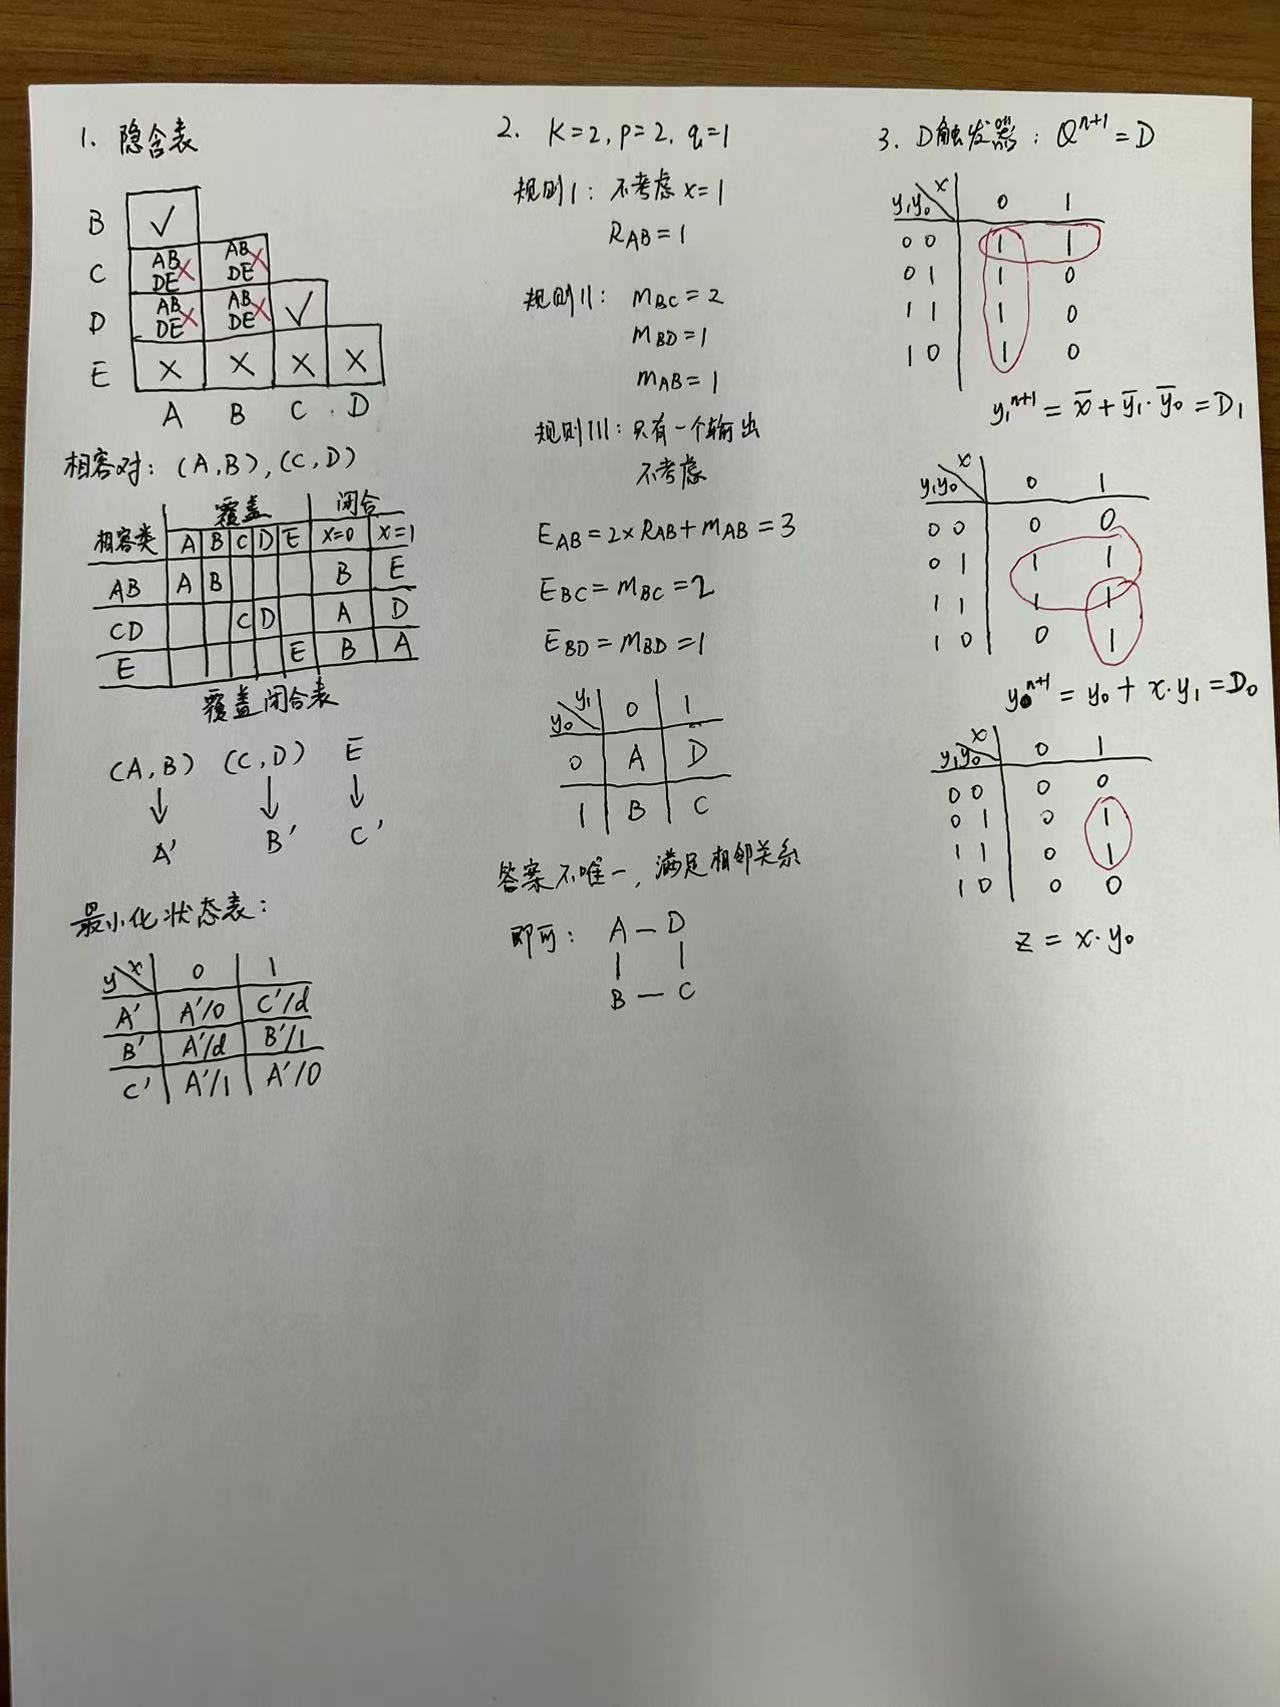 1. 隐含表
B ✓
C AB DE × AB DE ×
D AB DE × AB DE × ✓
E × × × ×
A B C D
相容对: (A,B),(C,D)
相容类 覆盖 闭合
A B C D E x=0 x=1
AB A B B E
CD C D A D
E E B A
覆盖闭合表
(A,B) (C,D) E
↓ ↓ ↓
A' B' C'
最小化状态表:
y x 0 1
A' A'/0 C'/d
B' A'/d B'/1
C' A'/1 A'/0
2. K=2, P=2, q=1
规则I: 不考虑 x=1
R_AB=1
规则II: m_BC=2
m_BD=1
m_AB=1
规则III: 只有一个输出
不考虑
E_AB=2×R_AB+m_AB=3
E_BC=m_BC=2
E_BD=m_BD=1
y₀ y₁ 0 1
0 A D
1 B C
答案不唯一, 满足相邻关系
即可: A — D
| |
B — C
3. D触发器: Qⁿ⁺¹=D
y₁y₀ x 0 1
00 1 1
01 1 0
11 1 0
10 1 0
y₁ⁿ⁺¹ = x̅ + y̅₁·y̅₀ = D₁
y₁y₀ x 0 1
00 0 0
01 1 1
11 1 1
10 0 1
y₀ⁿ⁺¹ = y₀ + x·y₁ = D₀
y₁y₀ x 0 1
00 0 0
01 0 1
11 0 1
10 0 0
z = x·y₀